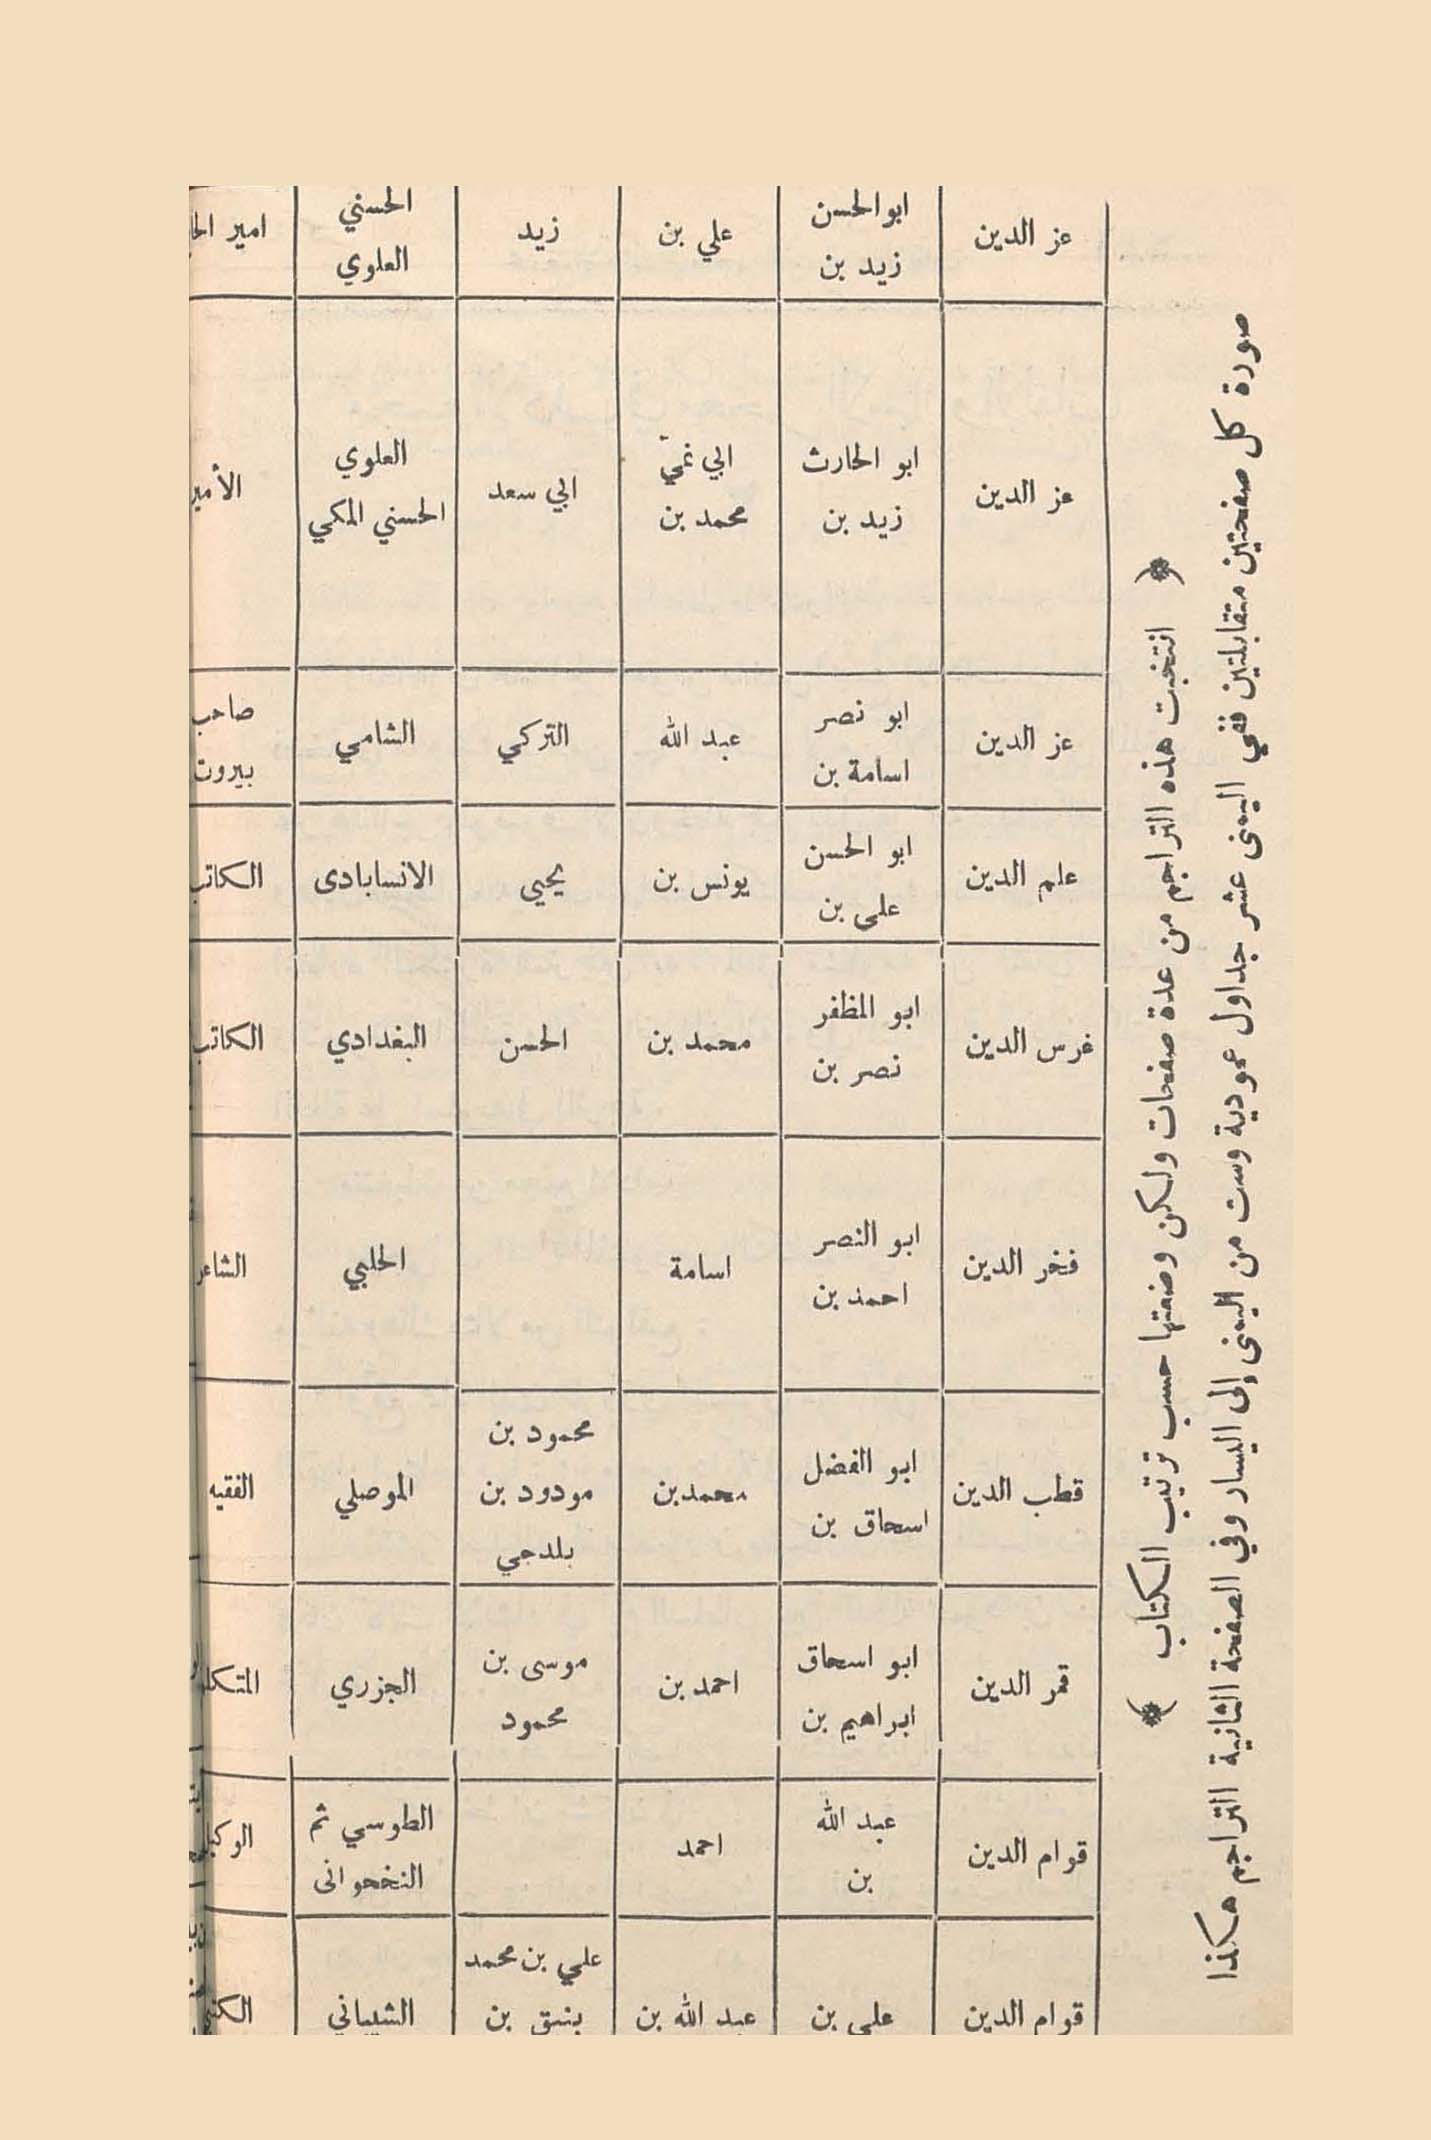 صورة كل صفحتين متقابلتين ففي اليمنى عشر جداول عمودية وست من اليمنى إلى اليسار وفي الصفحة الثانية التراجم هكذا
﴿ انتخبت هذه التراجم من عدة صفحات ولكن وضعتها حسب ترتيب الكتاب ﴾
عز الدين
ابو الحسن
زيد بن
علي بن
زيد
الحسني
العلوي
امير
عز الدين
ابو الحارث
زيد بن
ابي نمي
محمد بن
ابي سعد
العلوي
الحسني المكي
الأمير
عز الدين
ابو نصر
اسامة بن
عبد الله
التركي
الشامي
صاحب
بيروت
علم الدين
ابو الحسن
على بن
يونس بن
يحيي
الانسابادى
الكاتب
غرس الدين
ابو المظفر
نصر بن
محمد بن
الحسن
البغدادي
الكاتب
فخر الدين
ابو النصر
احمد بن
اسامة
الحلبي
الشاعر
قطب الدين
ابو الفضل
اسحاق بن
محمد بن
محمود بن
مودود بن
بلدجي
الموصلي
الفقيه
قمر الدين
ابو اسحاق
ابراهيم بن
احمد بن
موسى بن
محمود
الجزري
قوام الدين
عبد الله
بن
احمد
الطوسي ثم
النخحوانى
قوام الدين
على بن
عبد الله بن
علي بن محمد
الشيباني